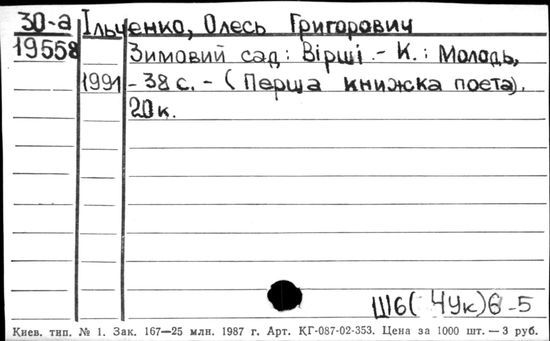 30-а Ільченко, Олесь Григорович
19558 Зимовий сад: Вірші. - К.: Молодь,
1991 - 38 с. - (Перша книжка поета).
20 к.
Ш6(4Ук)6-5
Киев. тип. № 1. Зак. 167—25 млн. 1987 г. Арт. КГ-087-02-353. Цена за 1000 шт. — 3 руб.